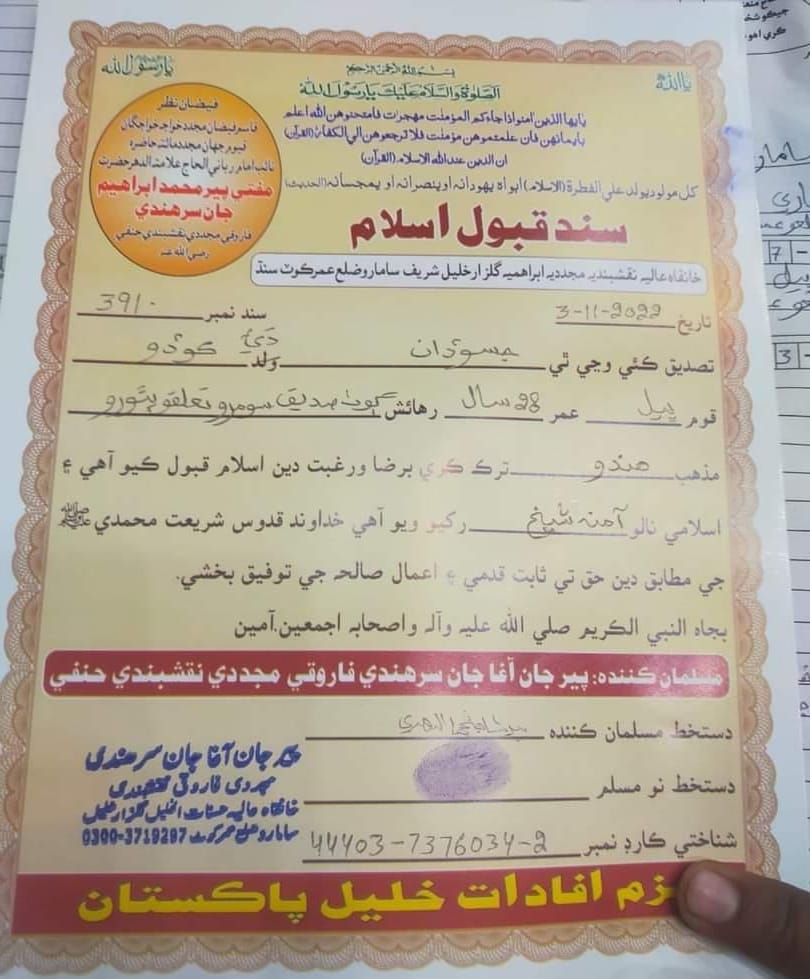 يا الله
بسم الله الرحمن الرحيم
يا رسول الله
الصلوة والسلام عليك يا رسول الله
يايها الذين امنوا اذا جاءكم المؤمنت مهجرات فامتحنوهن الله اعلم
بايمانهن فان علمتموهن مؤمنت فلا ترجعوهن الي الكفار (القرآن)
ان الدين عندالله الاسلام (القرآن)
كل مولود يولد علي الفطرة (الاسلام) ابواه يهودانه او ينصرانه او يمجسانه (الحديث)
فيضان نظر
قاسم فيضان مجدد خواجه خواجگان
قيوم جهان مجدد مائته حاضره
نائب امام رباني الحاج علامته الدهر حضرت
مفتي پير محمد ابراهيم
جان سرهندي
فاروقي مجددي نقشبندي حنفي
رضي الله عنه
سند قبول اسلام
خانقاه عاليه نقشبنديه مجدديه ابراهيميه گلزار خليل شريف سامارو ضلع عمرڪوٽ سنڌ
تاريخ 3-11-2022 سند نمبر 391۰
تصديق ڪئي وڃي ٿي جسوڙان ولد ڌيءُ ڪوڙو
قوم ڀيل عمر 28 سال رهائش ڳوٺ صديق سومرو تعلقو پٿورو
مذهب هندو ترڪ ڪري برضا ورغبت دين اسلام قبول ڪيو آهي ۽
اسلامي نالو آمنه شيخ رکيو ويو آهي خداوند قدوس شريعت محمدي ﷺ
جي مطابق دين حق تي ثابت قدمي ۽ اعمال صالحه جي توفيق بخشي.
بجاه النبي الكريم صلي الله عليه وآله واصحابه اجمعين. آمين
مسلمان ڪننده: پير جان آغا جان سرهندي فاروقي مجددي نقشبندي حنفي
دستخط مسلمان ڪننده
دستخط نو مسلم
شناختي ڪارڊ نمبر 44403-7376034-2
پير جان آقا جان سرهندی
مجددی فاروقی نقشبندی
خانقاه عاليه گلزار خليل
سامارو ضلع عمرکوٹ 0300-3719297
بزم افادات خليل پاڪستان